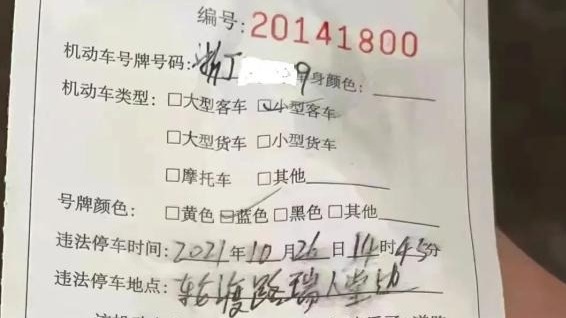 编号:20141800
机动车号牌号码:浙J 9 车身颜色:
机动车类型:□大型客车 ☑小型客车
□大型货车 □小型货车
□摩托车 □其他
号牌颜色:□黄色 ☑蓝色 □黑色 □其他
违法停车时间:2021年10月26日14时45分
违法停车地点:轮渡路瑞人堂